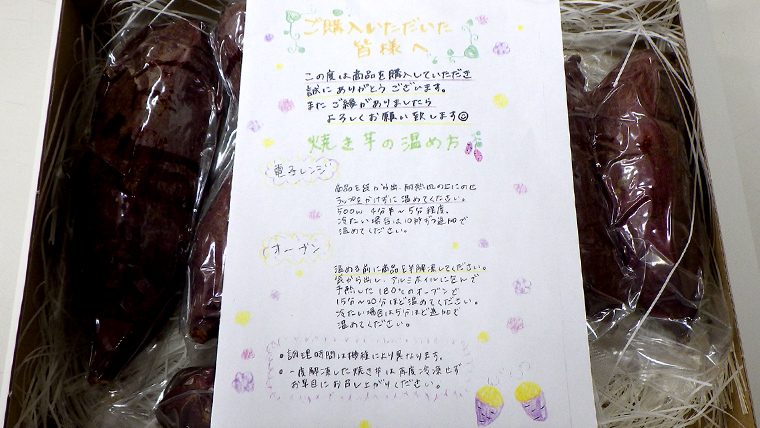 ご購入いただいた
皆様へ
この度は商品を購入していただき
誠にありがとうございます。
またご縁がありましたら
よろしくお願い致します
焼き芋の温め方
電子レンジ
商品を袋から出し、耐熱皿の上にのせ
ラップをかけずに温めてください。
500w 4分半〜5分程度。
冷たい場合は10秒ずつ追加で
温めてください。
オーブン
温める前に商品を半解凍してください。
袋から出し、アルミホイルに包んで
予熱した180℃のオーブンで
15分〜20分ほど温めてください。
冷たい場合は5分ほど追加で
温めてください。
調理時間は機種により異なります。
一度解凍した焼き芋は再度冷凍せず
お早目にお召し上がりください。